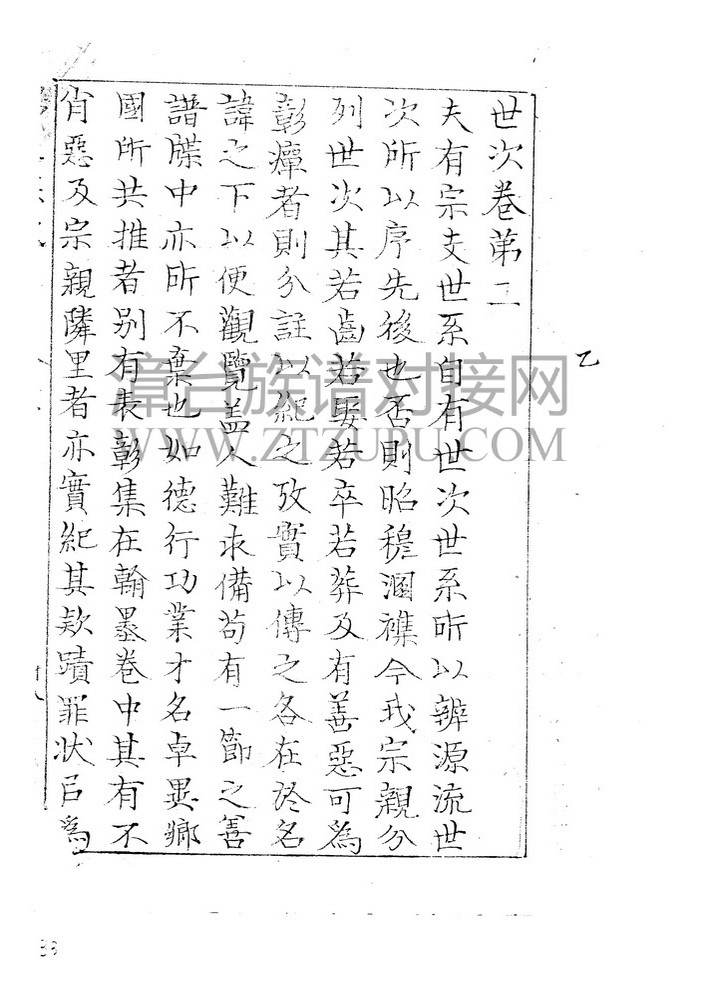 世次卷第二
夫有宗支世系自有世次世系所以辨源流世
次所以序先後也否則昭穆溷襍今我宗親分
列世次其若齒若娶若卒若葬及有善惡可為
彰癉者則分註以紀之攷實以傳之各在於名
諱之下以便觀覽盖人難求備苟有一節之善
譜牒中亦所不棄也如德行功業才名卓異鄉
國所共推者别有表彰集在翰墨卷中其有不
肖惡及宗親隣里者亦實紀其欵蹟罪状㠯為
乙
章台族谱对接网
WWW.ZTZUPU.COM